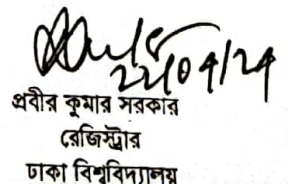 ২২/০৭/২৪
প্রবীর কুমার সরকার
রেজিস্ট্রার
ঢাকা বিশ্ববিদ্যালয়